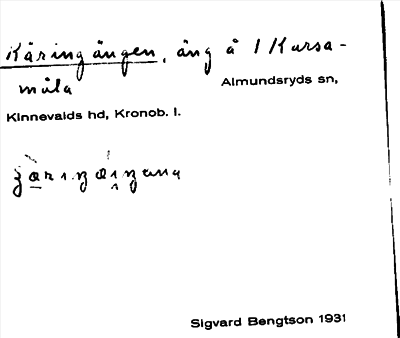 Käringängen, äng å 1 Kursa-
måla Almundsryds sn,
Kinnevalds hd, Kronob. l.
Sigvard Bengtson 1931